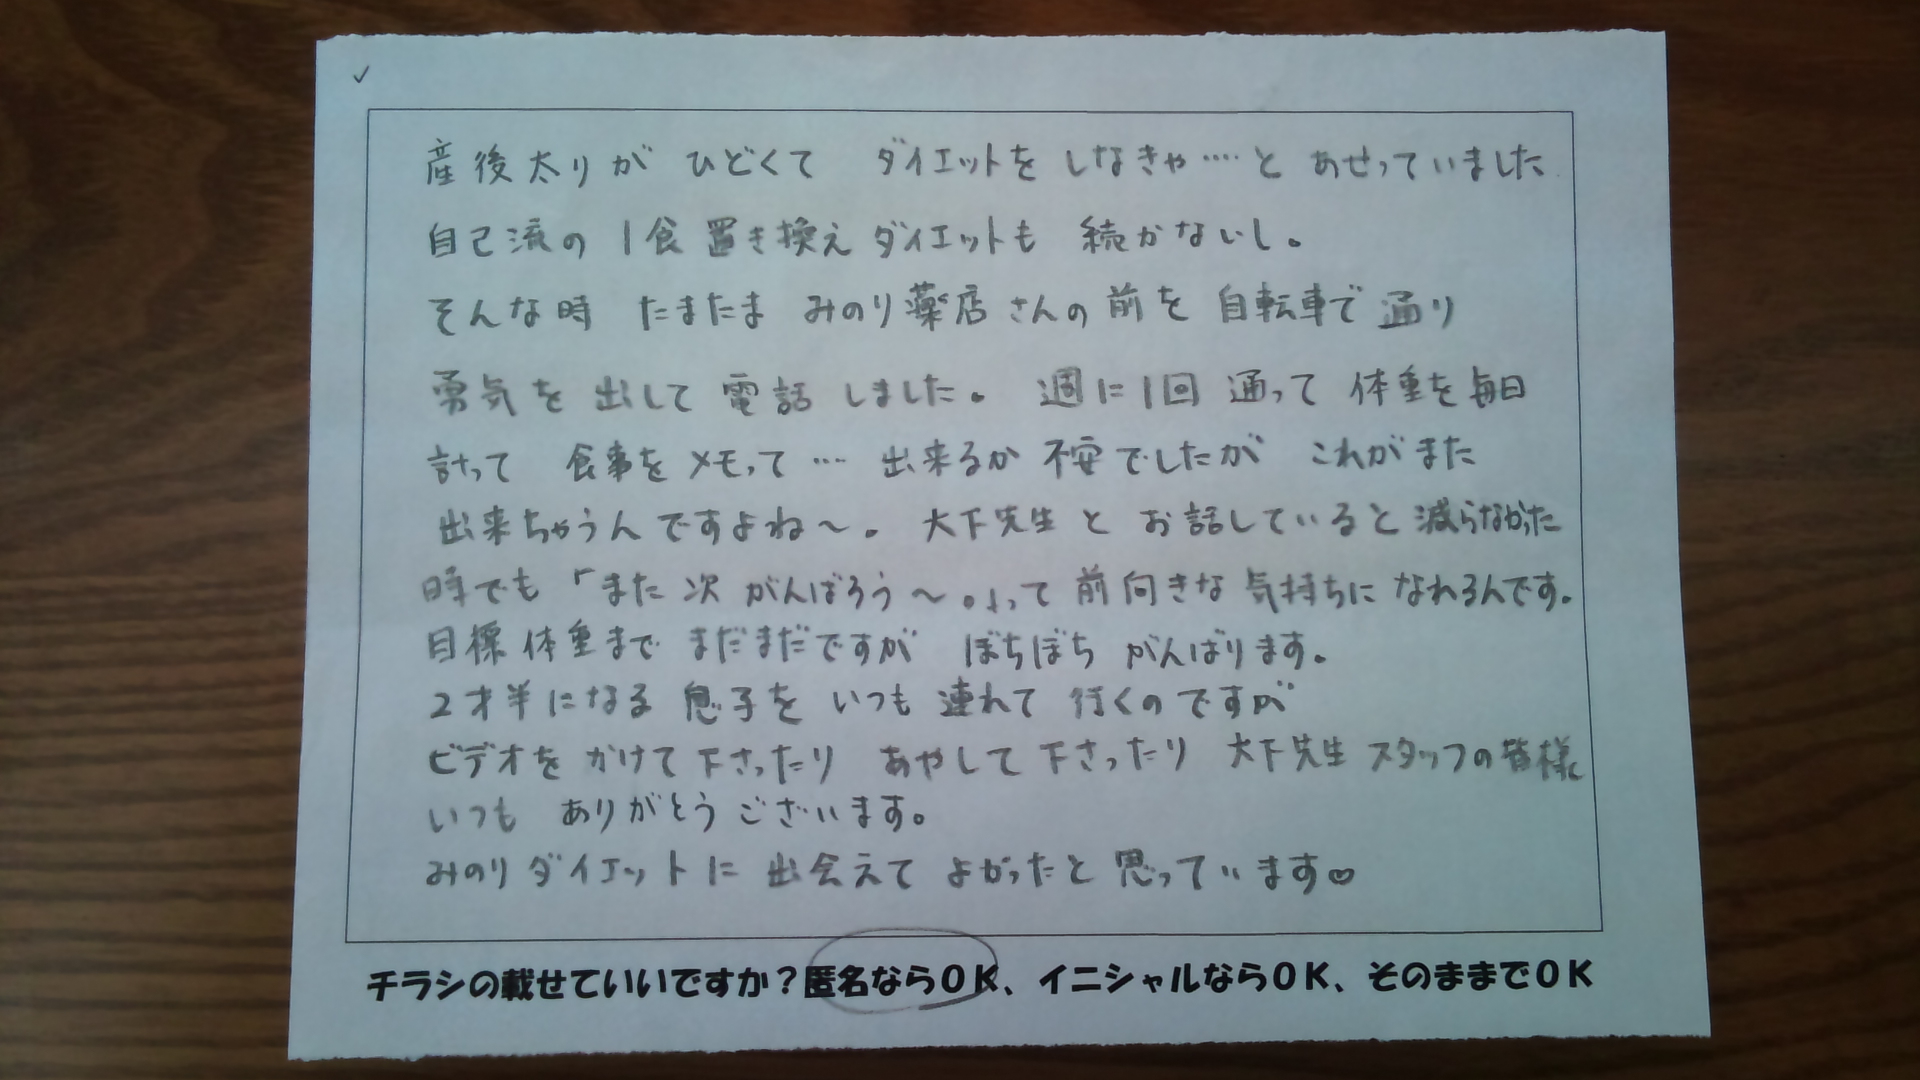 ✓
産後太りが ひどくて ダイエットを しなきゃ‥‥と あせっていました
自己流の 1食置き換えダイエットも 続かないし。
そんな時 たまたま みのり薬店さんの前を 自転車で通り
勇気を出して 電話しました。 週に1回 通って 体重を毎日
計って 食事をメモって… 出来るか 不安でしたが これがまた
出来ちゃうんですよね〜。 大下先生と お話していると 減らなかった
時でも 「また 次 がんばろう〜。」って 前向きな 気持ちに なれるんです。
目標体重まで まだまだですが ぼちぼち がんばります。
2才半になる 息子を いつも 連れて 行くのですが
ビデオを かけて 下さったり あやして 下さったり 大下先生 スタッフの皆様
いつも ありがとうございます。
みのりダイエットに 出会えて よかったと 思っています♡
チラシの載せていいですか？匿名ならＯＫ、イニシャルならＯＫ、そのままでＯＫ